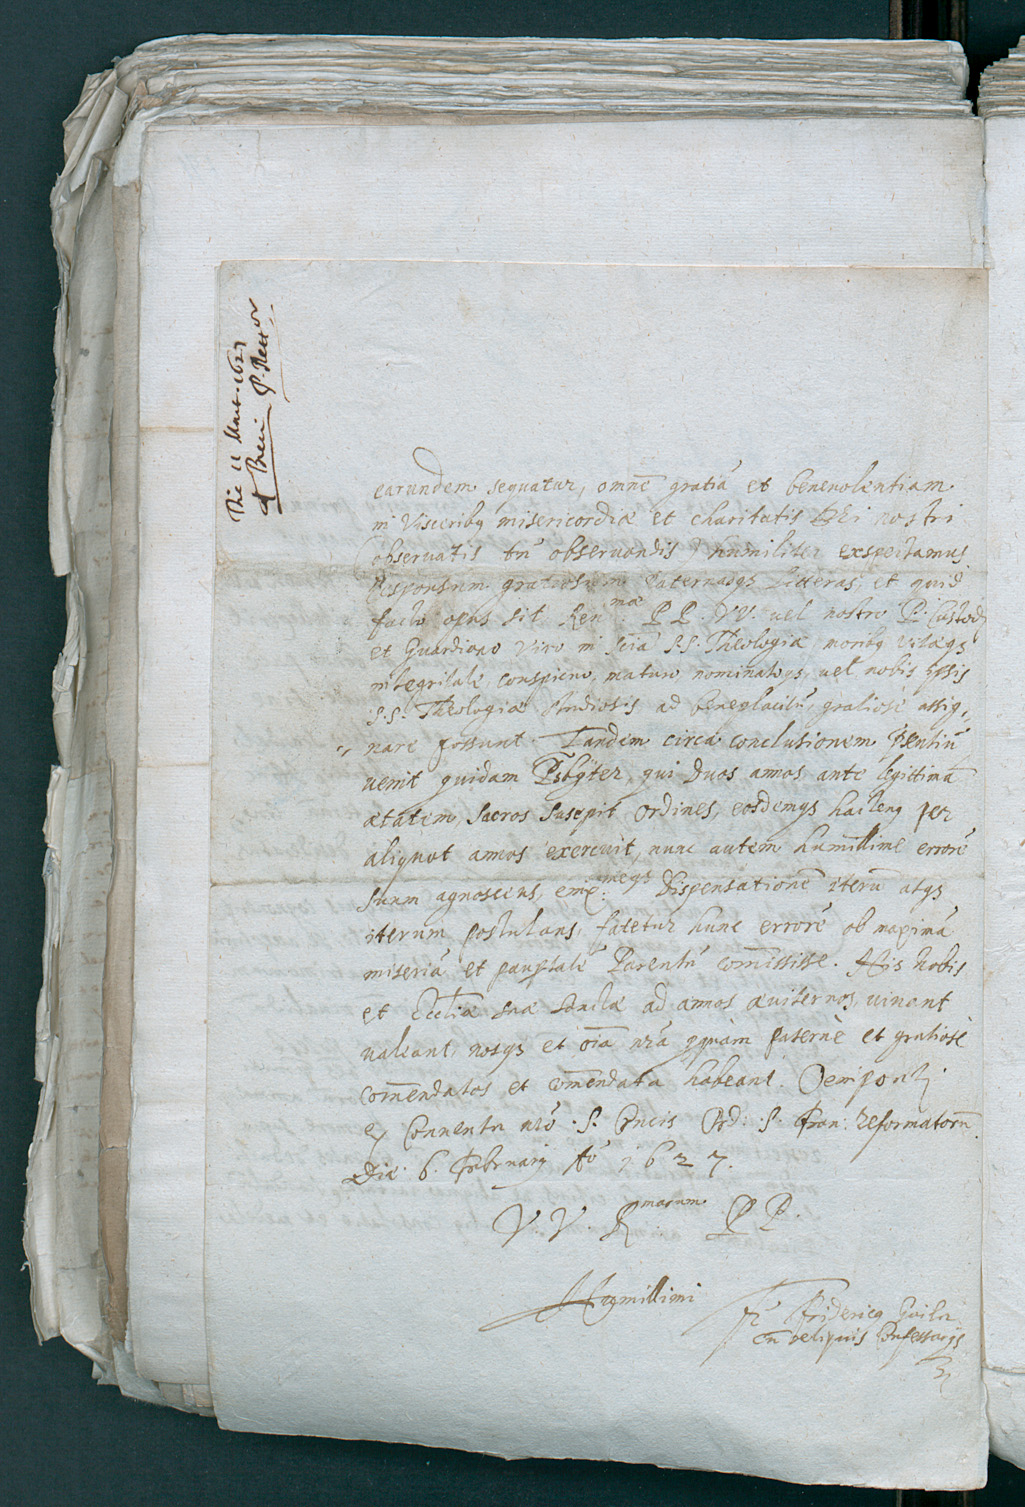 Die 11 Mart. 1627
earundem sequatur, omnē gratiā et beneuolentiam
in Visceribq misericordiæ et charitatis DEi nostri
(obseruatis tn̄ obseruandis) humiliter exspectamus.
Responsum gratiosum Paternasqs Litteras, et quid
facto opus sit Reu:mæ P P. VV. uel nostro P. Custodi
et Guardiano Viro in sciā S.S. Theologiæ moribq Vitæqs
integritate, conspicuo, maturo nominatoqs, uel nobis ipsis
S.S. Theologiæ studiosis ad beneplacitū, gratiose assig„
„nare possunt. Tandem circa conclusionem pn̄tiū
uenit quidam Psbyter, qui duos annos ante legittimā
ætatem, Sacros suscepit Ordines, eosdemqs hactenq per
aliquot annos exercuit, nunc autem humillime errorē
suum agnoscens, Dispensationē iterū atqs
iterum postulans, fatetur hunc errorē ob maximā
miseriā et paup̄tatē Parentū com̄isisse. His nobis
et Eccliæ suæ sanctæ ad annos æuiternos, uiuant
ualeant, nosqs et oīa nrā paternè et gratiosè
com̄endatos et com̄endata habeant. Oeniponti
ex Conuentu nrō S. Crucis Ord: S. Fran: reformatorū
Die 6. Februarij Aō 1627.
V. V. Rmarum P P.
Humillimi
Fr. Fridericq
cū reliquis Confessarijs